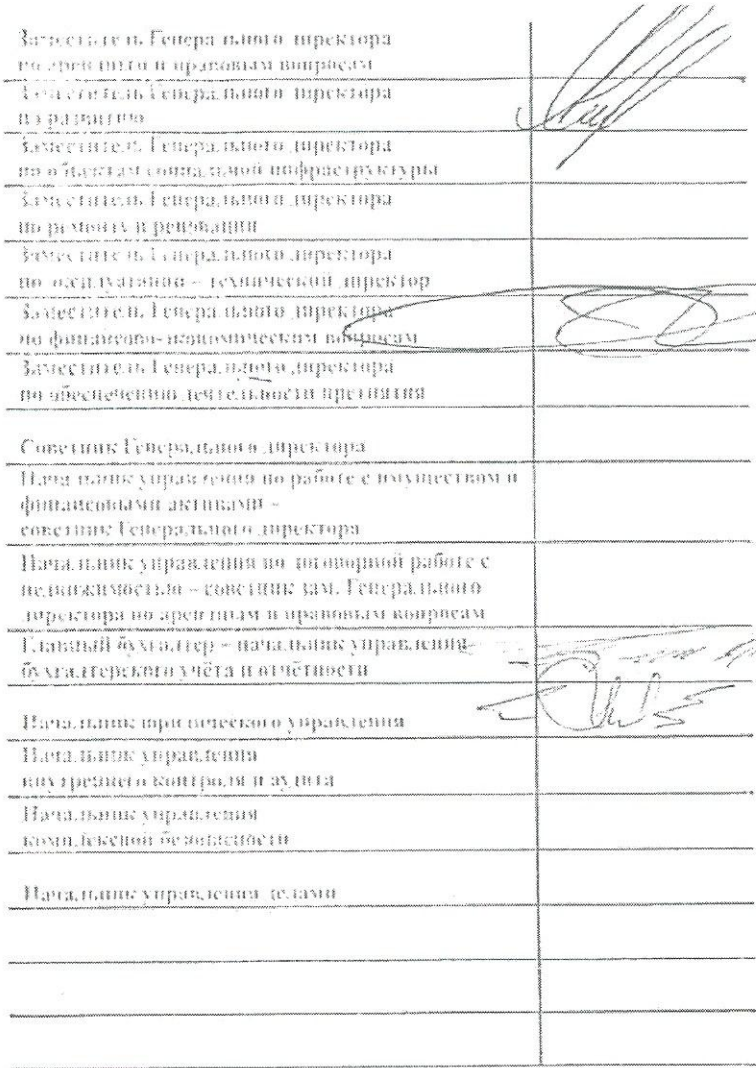 Заместитель Генерального директора
по арендным и правовым вопросам
Заместитель Генерального директора
по развитию
Заместитель Генерального директора
по объектам социальной инфраструктуры
Заместитель Генерального директора
по ремонту и реновации
Заместитель Генерального директора
по эксплуатации – технический директор
Заместитель Генерального директора
по финансово-экономическим вопросам
Заместитель Генерального директора
по обеспечению деятельности предприятия
Советник Генерального директора
Начальник управления по работе с имуществом и
финансовыми активами –
советник Генерального директора
Начальник управления по договорной работе с
недвижимостью – советник зам. Генерального
директора по арендным и правовым вопросам
Главный бухгалтер – начальник управления
бухгалтерского учёта и отчётности
Начальник юридического управления
Начальник управления
внутреннего контроля и аудита
Начальник управления
комплексной безопасности
Начальник управления делами